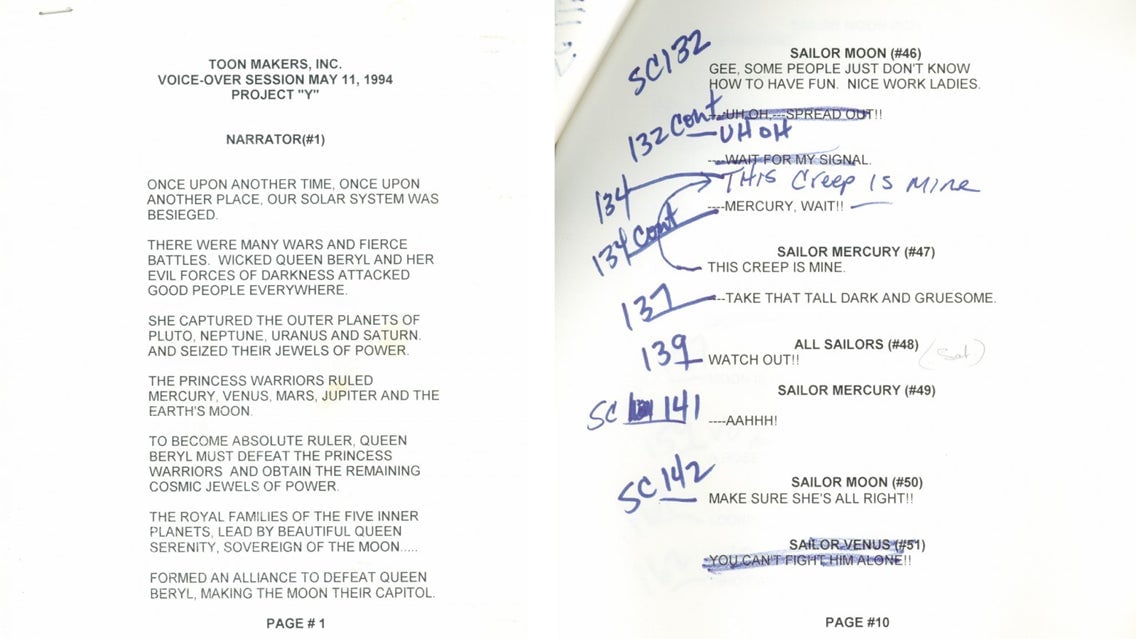 TOON MAKERS, INC.
VOICE-OVER SESSION MAY 11, 1994
PROJECT "Y"
NARRATOR(#1)
ONCE UPON ANOTHER TIME, ONCE UPON
ANOTHER PLACE, OUR SOLAR SYSTEM WAS
BESIEGED.
THERE WERE MANY WARS AND FIERCE
BATTLES. WICKED QUEEN BERYL AND HER
EVIL FORCES OF DARKNESS ATTACKED
GOOD PEOPLE EVERYWHERE.
SHE CAPTURED THE OUTER PLANETS OF
PLUTO, NEPTUNE, URANUS AND SATURN.
AND SEIZED THEIR JEWELS OF POWER.
THE PRINCESS WARRIORS RULED
MERCURY, VENUS, MARS, JUPITER AND THE
EARTH'S MOON.
TO BECOME ABSOLUTE RULER, QUEEN
BERYL MUST DEFEAT THE PRINCESS
WARRIORS AND OBTAIN THE REMAINING
COSMIC JEWELS OF POWER.
THE ROYAL FAMILIES OF THE FIVE INNER
PLANETS, LEAD BY BEAUTIFUL QUEEN
SERENITY, SOVEREIGN OF THE MOON.....
FORMED AN ALLIANCE TO DEFEAT QUEEN
BERYL, MAKING THE MOON THEIR CAPITOL.
PAGE # 1
SC132
SAILOR MOON (#46)
GEE, SOME PEOPLE JUST DON'T KNOW
HOW TO HAVE FUN. NICE WORK LADIES.
132 Cont
----UH OH,---SPREAD OUT!!
UH OH
---WAIT FOR MY SIGNAL.
134
THIS Creep IS MINE
134 Cont
----MERCURY, WAIT!!
SAILOR MERCURY (#47)
THIS CREEP IS MINE.
137
---TAKE THAT TALL DARK AND GRUESOME.
139
ALL SAILORS (#48)
WATCH OUT!!
SAILOR MERCURY (#49)
SC 141
----AAHHH!
SC142
SAILOR MOON (#50)
MAKE SURE SHE'S ALL RIGHT!!
SAILOR VENUS (#51)
YOU CAN'T FIGHT HIM ALONE!!
PAGE #10